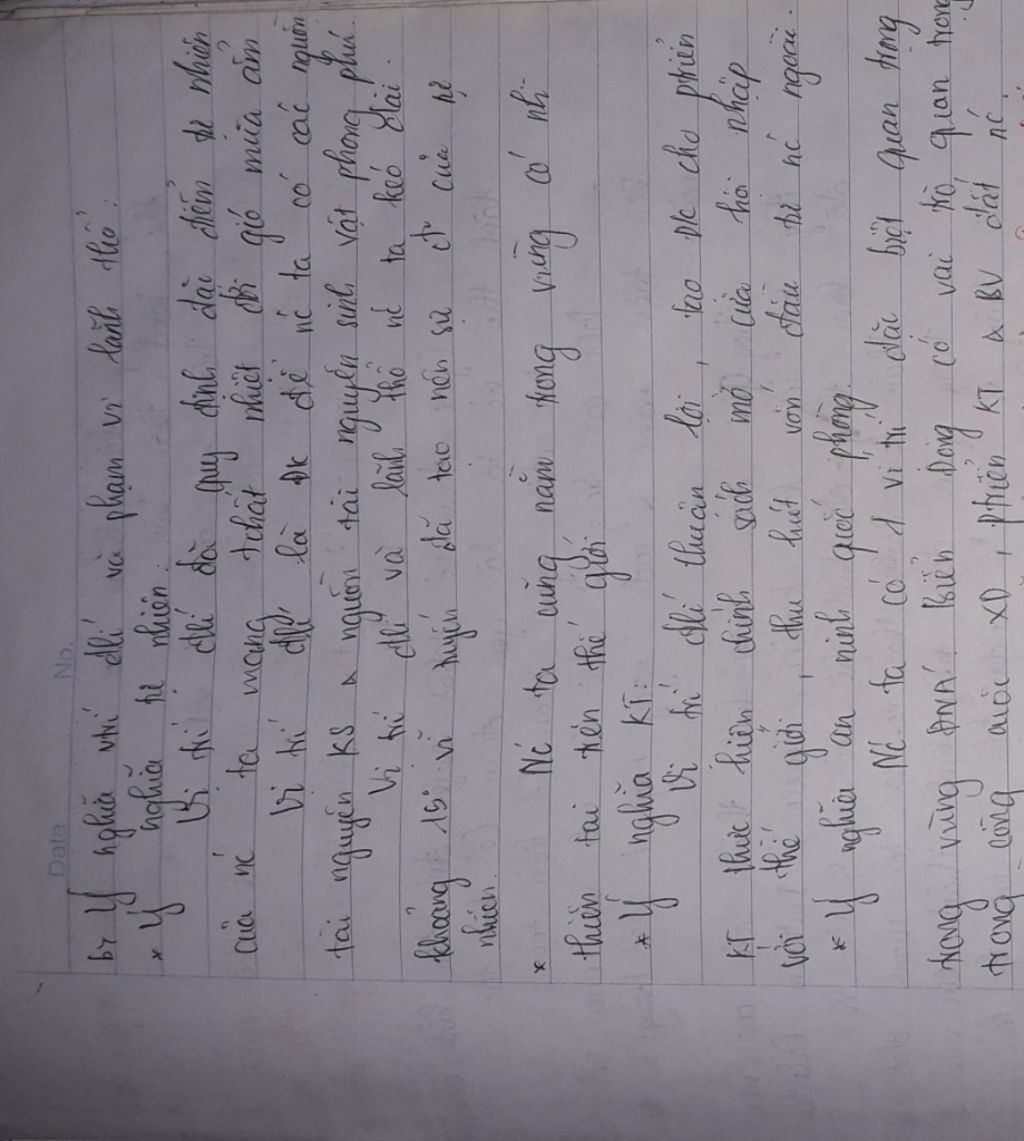 No.
Date
b, Ý nghĩa vtrí đlí và phạm vi lãnh thổ:
* Ý nghĩa tự nhiên.
Vị trí đlí đã quy định đặc điểm tự nhiên
của nc ta mang tchất nhiệt đới gió mùa ẩm
Vị trí đlí là đk để nc ta có các nguồn
tài nguyên KS & nguồn tài nguyên sinh vật phong phú.
Vị trí đlí và lãnh thổ nc ta kéo dài
khoảng 15° vĩ tuyến đã tạo nên sự của tự
nhiên.
* Nc ta cũng nằm trong vùng có nh
thiên tai trên thế giới
* Ý nghĩa KT:
Vị trí đlí thuận lợi, tạo đk cho ptriển
KT thực hiện chính sách mở cửa hội nhập
với thế giới, thu hút vốn đầu tư nc ngoài.
* Ý nghĩa an ninh quốc phòng.
Nc ta có 1 vị trí đặc biệt quan trọng
trong vùng ĐNÁ. Biển Đông có vai trò quan trọng
trong công cuộc XD, ptriển KT & BV đất nc